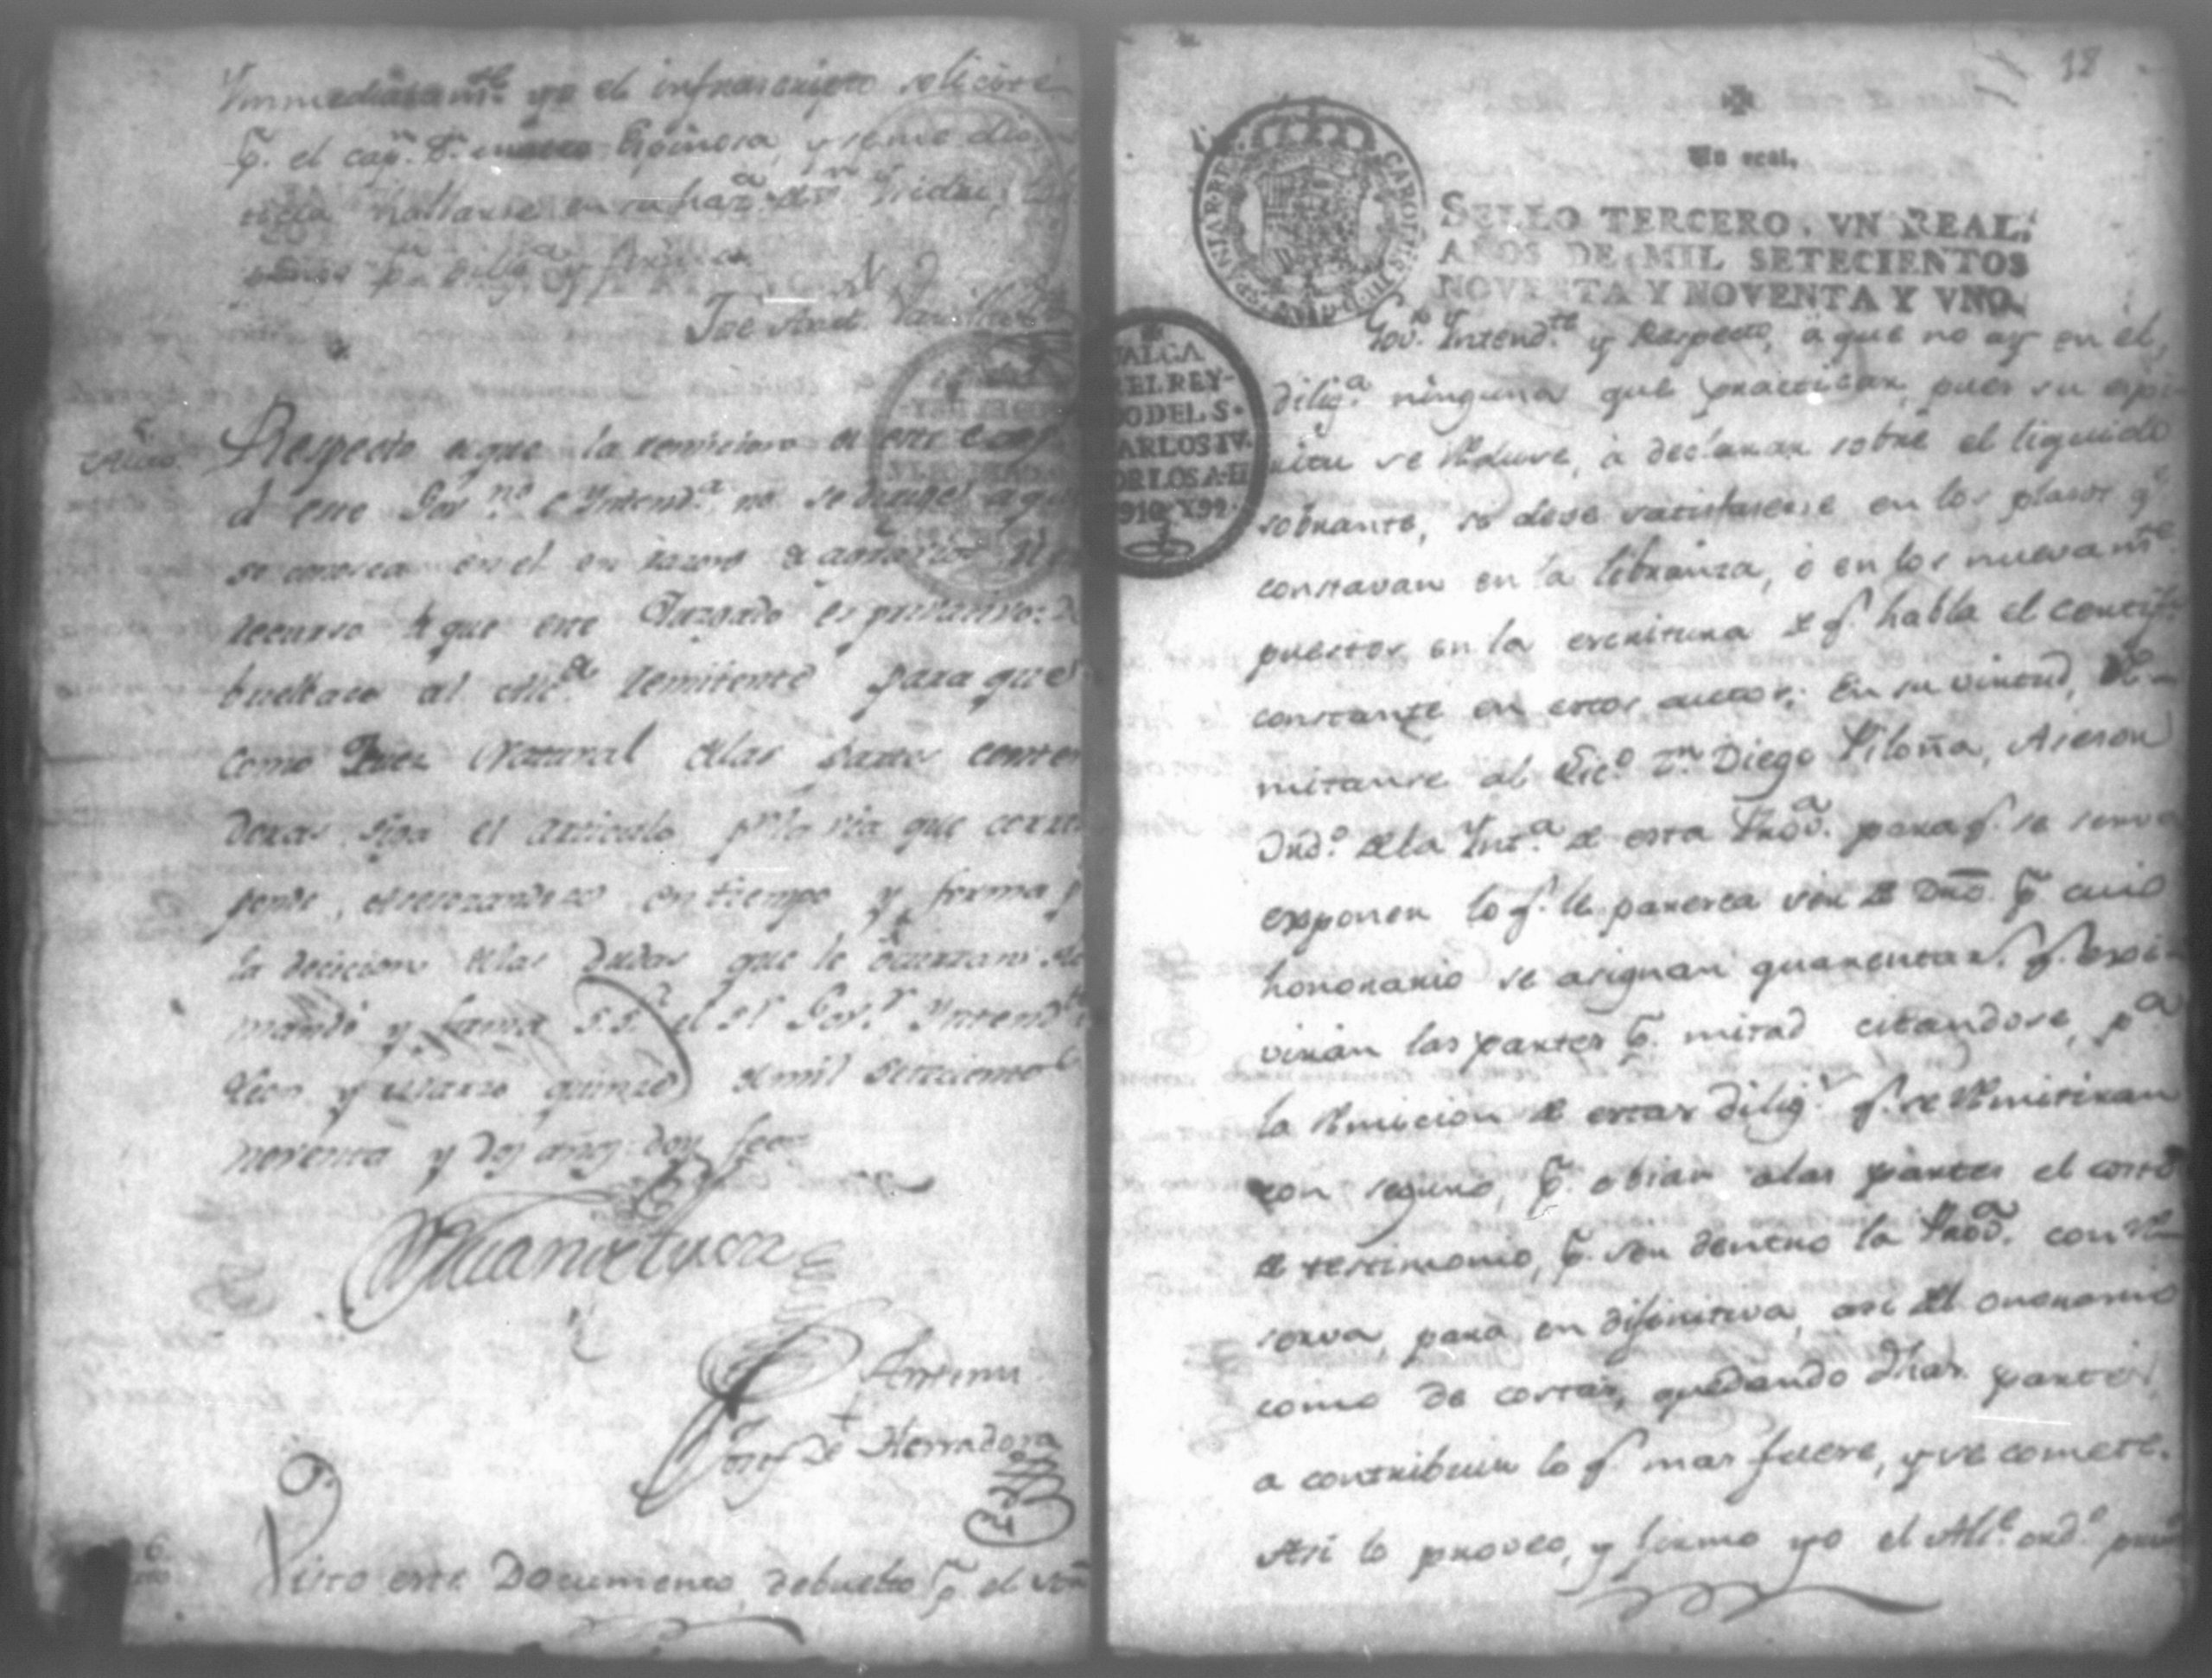 Ynmediatamte. yo el infraescripto solicité
p. el capn. Dn. Espinosa, y se me dio no
ticia hallarse en su haza. de
y
Jue Anto.
Auto.
Respecto a que la remicion de este
á este Govno. é Yntenda. no se dirige a que
se conosca en él en razon de
recurso de que este Juzgado es privativo: de
buelbase al Alcde. remitente para que
como Juez Natural de las partes conten
doras siga el articulo por la via que corres
ponde, asesorandose en tiempo y forma p
la decicion de las dudas que le ocurran: lo
mandó y firma S.Sa. el Sr. Govr. Yntendte.
Leon y Marzo quinze de mil setecientos
noventa y dos años doy fee
Ante mi
Josef de Herradora
6.
Visto este Documento, debuelto p. el Señ
18
Un real.
SELLO TERCERO. VN REAL,
AÑOS DE MIL SETECIENTOS
NOVENTA Y NOVENTA Y VNO.
CAROLUS III D G HISPANIAR REX
VALGA
EL REY-
DO DEL S.
CARLOS IV.
POR LOS A. EI
91 Y 92.
Govor. Yntendte. y Respecto, á que no ay en él,
diliga. ninguna que practicar, pues su espi
ritu se Reduse, á declarar sobre el liquido
sobrante, si deve satisfacerse en los plasos qe.
constavan en la libranza, ó en los nuevamte.
puestos en la escritura de q. habla el certifo.
constante en estos autos: En su virtud, Re-
mitanse al Lico. Dn. Diego Piloña, Asesor
Ordo. de la Inta. de esta Prova. para q. se sirva
exponer lo q. le paresca ser de Dro. p. cuio
honorario se asignan quarenta ps. q. exi-
virán las partes p. mitad citandose, pa.
la Remicion de estas diligs. q. se Remitiran
con seguro, p. obiar a las partes el costo
de testimonio, p. ser dentro la Prova. con Re
serva, para en difinitiva, asi del onorario
como de costas, quedando dhas. partes
a contribuir lo q. mas fuere, y se comete.
Asi lo proveo, y firmo yo el Alce. ordo. prim